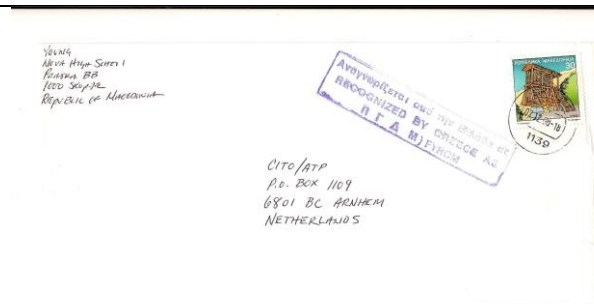 YOUNG
NOVA HIGH SCHOOL
BB
1000 SKOPJE
REPUBLIC OF MACEDONIA
Αναγνωρίζεται από την Ελλάδα ως
RECOGNIZED BY GREECE AS
Π Γ Δ Μ) FYROM
РЕПУБЛИКА МАКЕДОНИЈА
30
1139
CITO/ATP
P.O. BOX 1109
6801 BC ARNHEM
NETHERLANDS